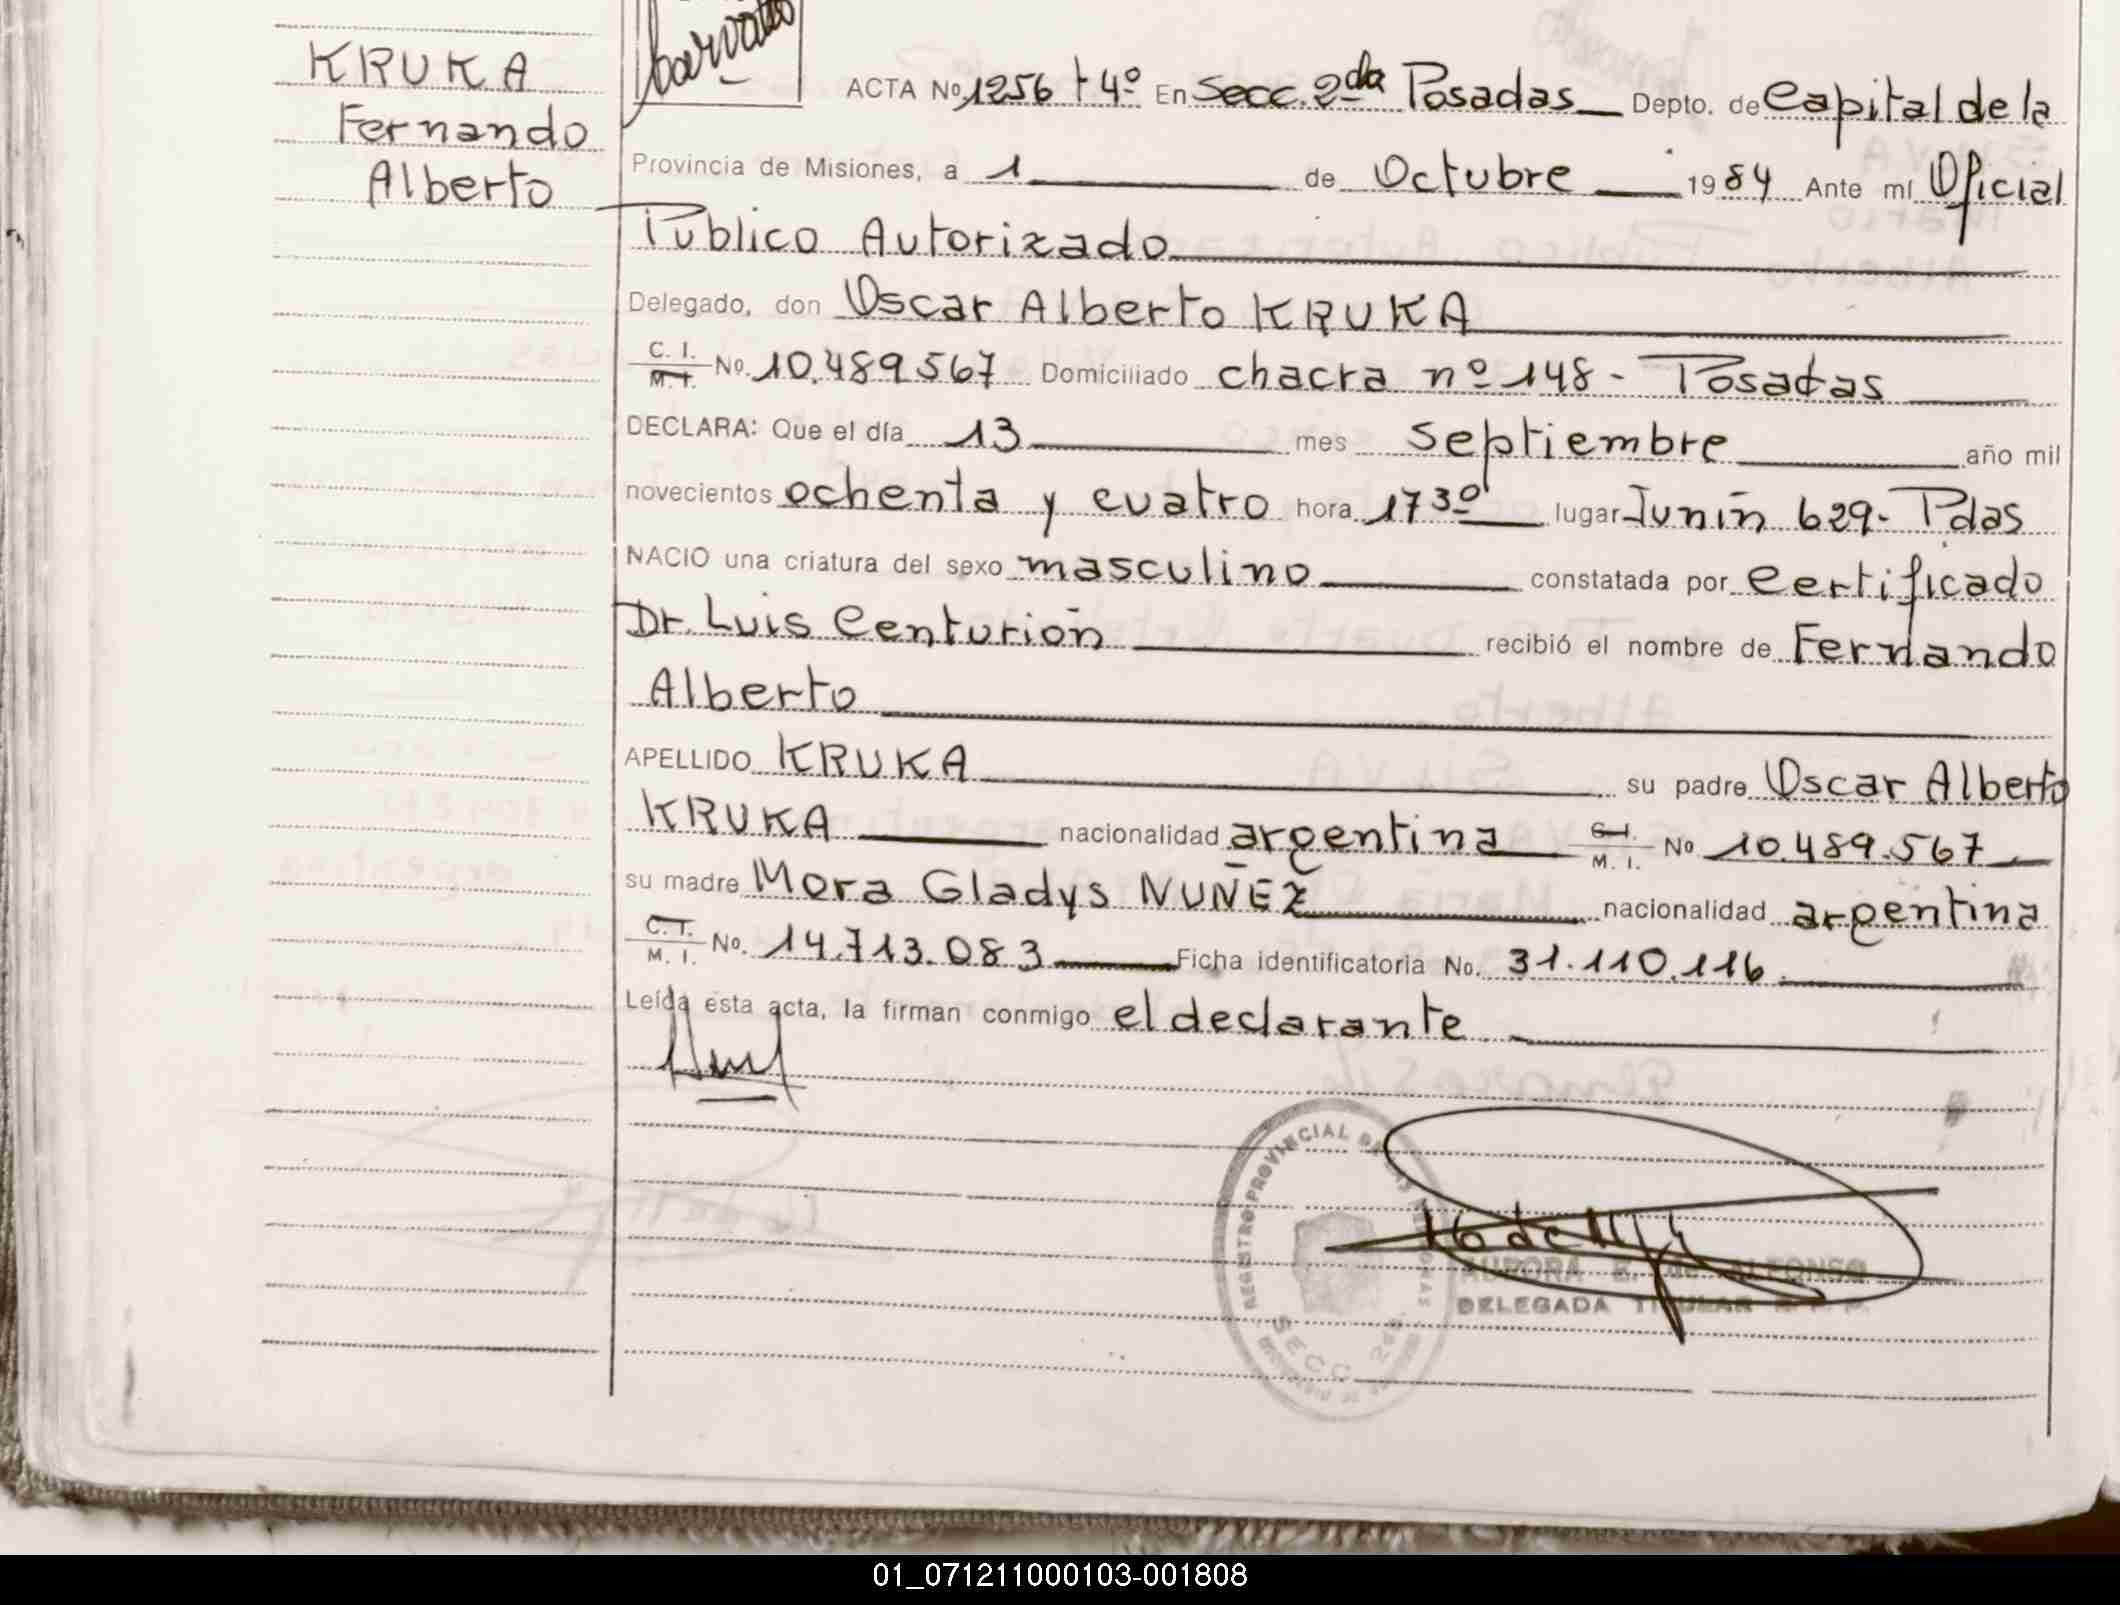 KRUKA
Fernando
Alberto
ACTA No. 1256 t 4º En Secc. 2da Posadas Depto. de Capital de la
Provincia de Misiones, a 1 de Octubre 1984 Ante mí Oficial
Publico Autorizado
Delegado, don Oscar Alberto KRUKA
C. I.
M. I. No. 10.489.567 Domiciliado chacra nº 148 - Posadas
DECLARA: Que el día 13 mes septiembre año mil
novecientos ochenta y cuatro hora 17 30 lugar Junín 629 - Pdas
NACIO una criatura del sexo masculino constatada por Certificado
Dr. Luis Centurión recibió el nombre de Fernando
Alberto
APELLIDO KRUKA su padre Oscar Alberto
KRUKA nacionalidad argentina C. I.
M. I. No 10.489.567
su madre Mora Gladys NUÑEZ nacionalidad argentina
C. I.
M. I. No. 14.713.083 Ficha identificatoria No. 31.110.116
Leída esta acta, la firman conmigo el declarante
REGISTRO PROVINCIAL DE LAS PERSONAS
SECC. 2da
AURORA E. de ALFONSO
DELEGADA TITULAR R. P. P.
01_071211000103-001808